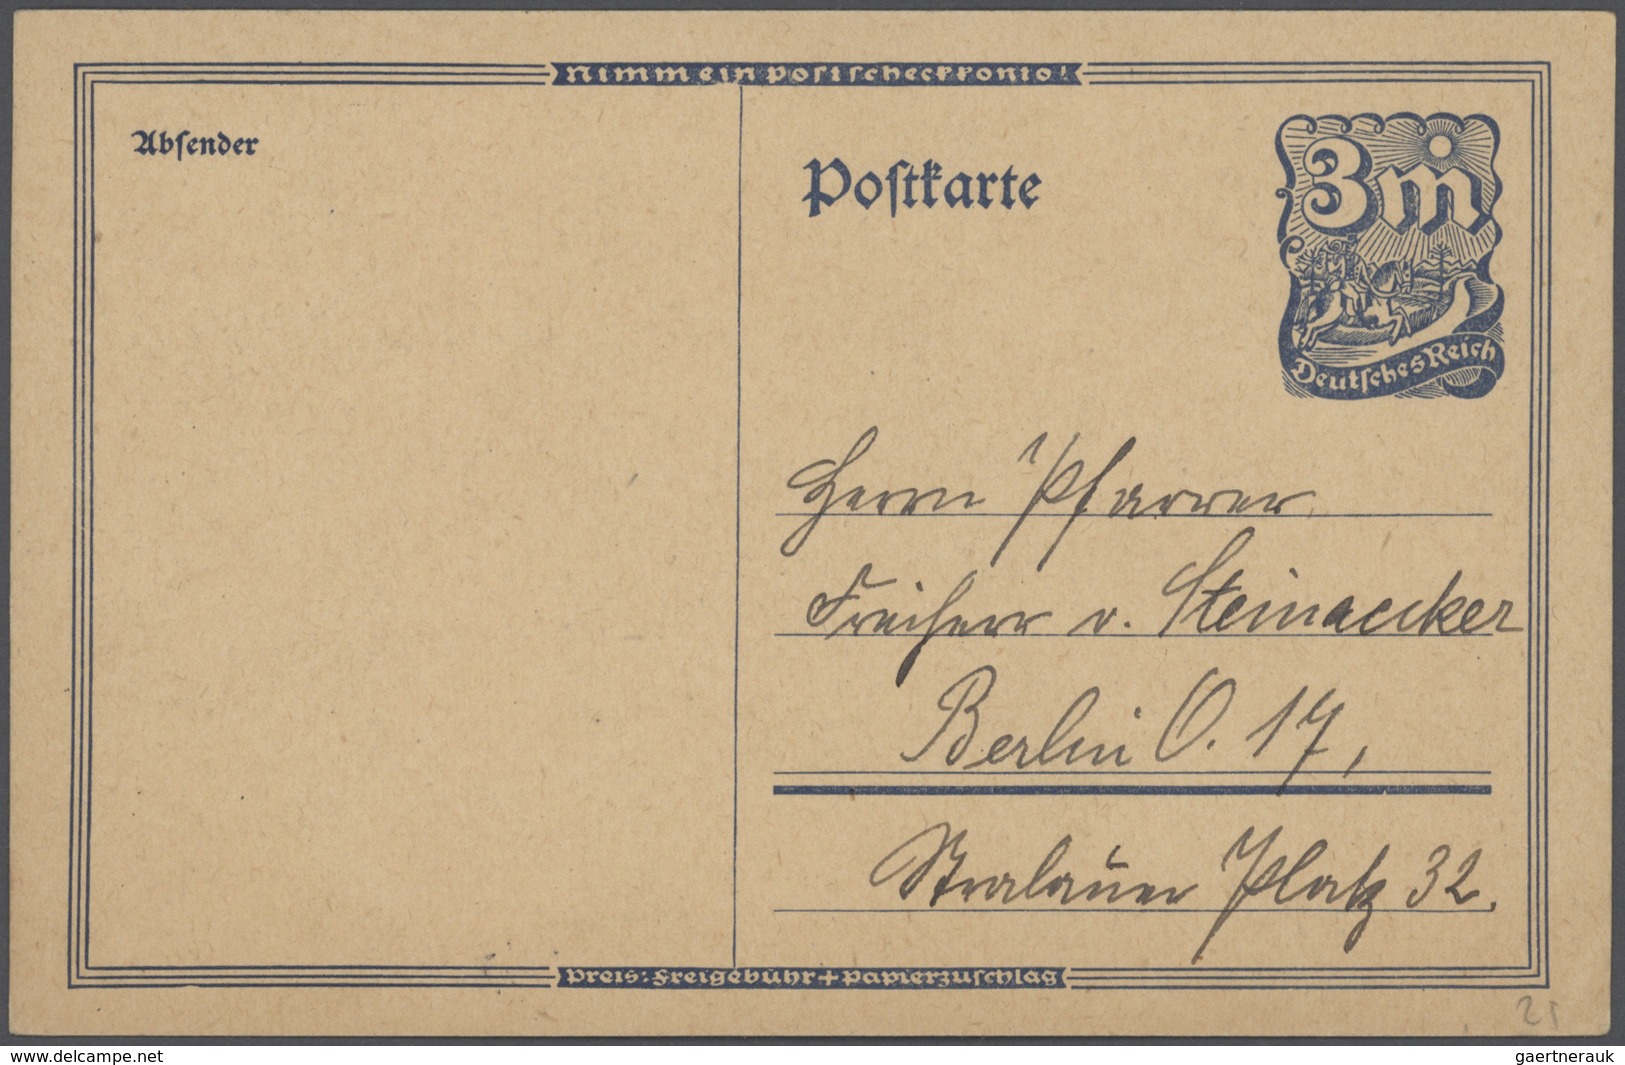 Nimm ein Postscheckkonto!
Absender
Postkarte
3 m
Deutsches Reich
Herrn Pfarrer
Freiherr v. Steinaecker
Berlin O. 17,
Stralauer Platz 32.
Preis: Freigebühr + Papierzuschlag
25
www.delcampe.net
gaertnerauk